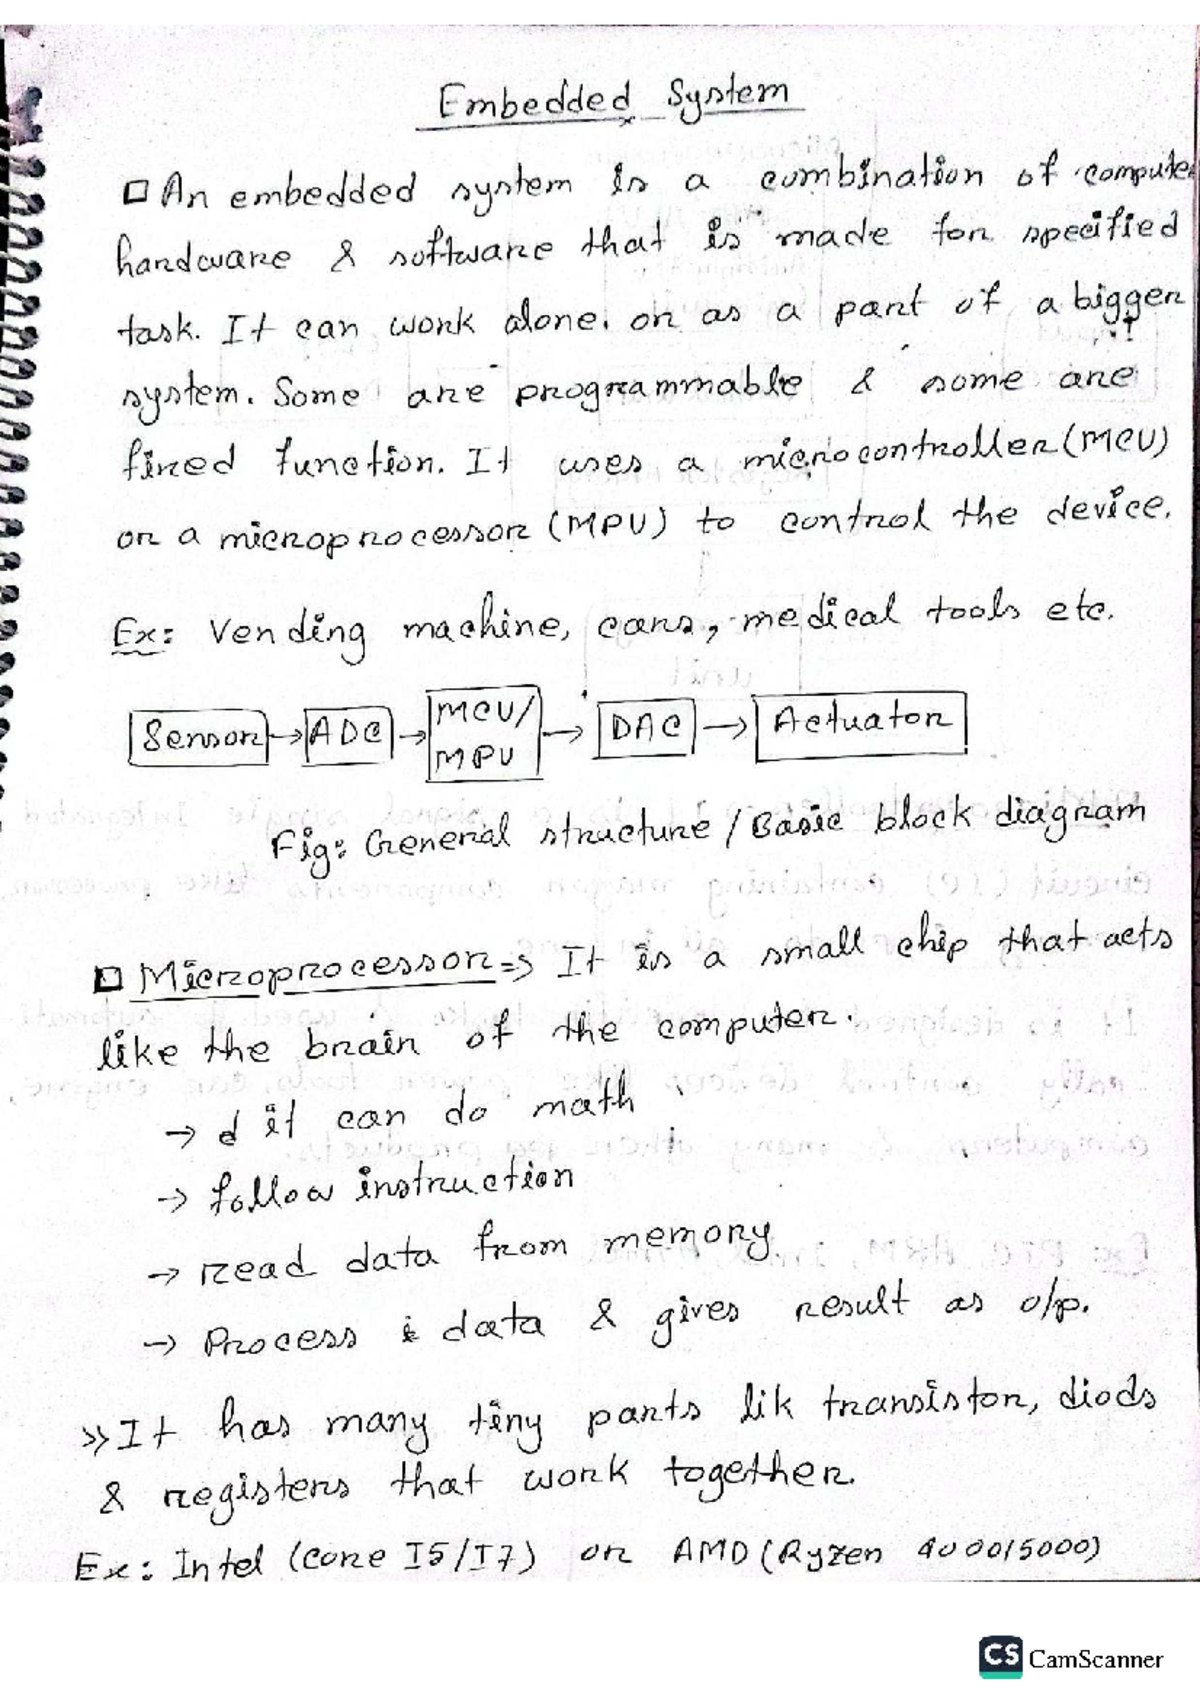 Embedded System
□ An embedded system is a combination of computer
hardware & software that is made for specified
task. It can work alone. or as a part of a bigger
system. Some are programmable & some are
fixed function. It uses a microcontroller (MCU)
or a microprocessor (MPU) to control the device.
Ex: Vending machine, cars, medical tools etc.
Sensor → ADC → MCU/MPU → DAC → Actuator
Fig: General structure / Basic block diagram
□ Microprocessor => It is a small chip that acts
like the brain of the computer.
→ it can do math
→ follow instruction
→ read data from memory
→ Process data & gives result as o/p.
>> It has many tiny parts lik transistor, diods
& registers that work together.
Ex: Intel (core I5/I7) or AMD (Ryzen 4000/5000)
CS CamScanner